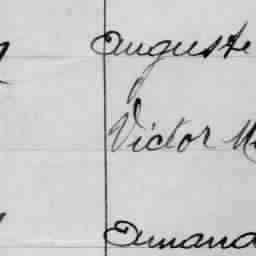 Auguste
Victor M
Amand